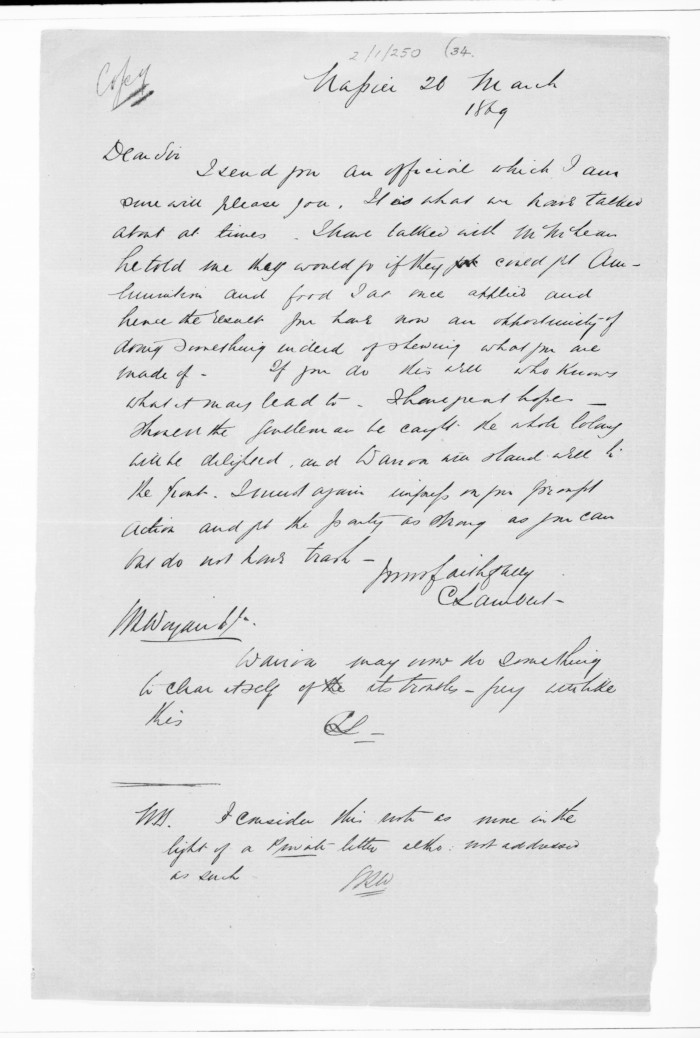 2/1/250 (34.
Copy
Napier 20 March
1869
Dear Sir
I send you an official which I am
sure will please you. It is what we have talked
about at times. I have talked with Mr McLean
he told me they would go if they could get Am-
munition and food I at once applied and
hence the result you have now an opportunity of
doing something indeed of shewing what you are
made of - If you do this well who knows
what it may lead to - I have great hopes -
Should the gentleman be caught the whole Colony
will be delighted, and Wairoa will stand well to
the front. I must again impress on you prompt
action and get the party as strong as you can
but do not have trash -
Yours faithfully
C Lambert -
Wairoa may now do something
to clear itself of its troubles - pray undertake
this CL -
NB. I consider this note as more in the
light of a Private letter altho: not addressed
as such